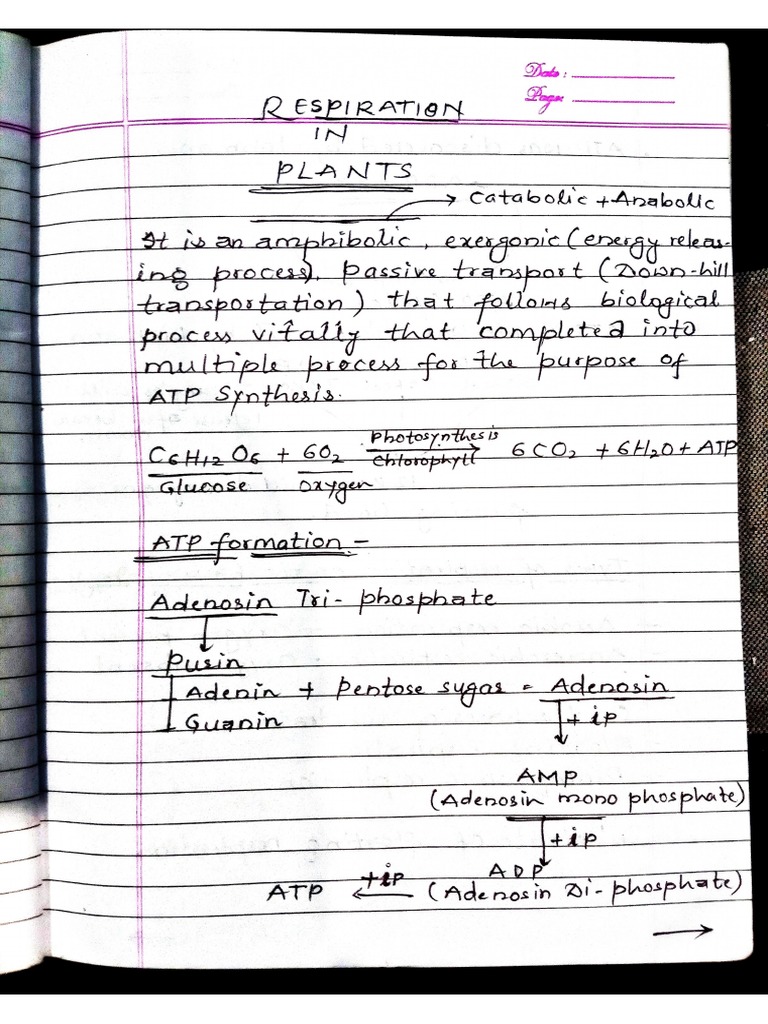 Date :
Page:
RESPIRATION
IN
PLANTS
→ Catabolic + Anabolic
It is an amphibolic, exergonic (energy releas-
ing process), passive transport (Down-hill
transportation) that follows biological
process vitally that completed into
multiple process for the purpose of
ATP Synthesis.
C6H12O6 + 6O2 Photosynthesis → Chlorophyll 6CO2 + 6H2O + ATP
Glucose Oxygen
ATP formation -
Adenosin Tri-phosphate
↓
Pusin
Adenin + Pentose sugas = Adenosin
Guanin ↓ + ip
AMP
(Adenosin mono phosphate)
↓ + ip
ADP
ATP ← +ip (Adenosin Di-phosphate)
→